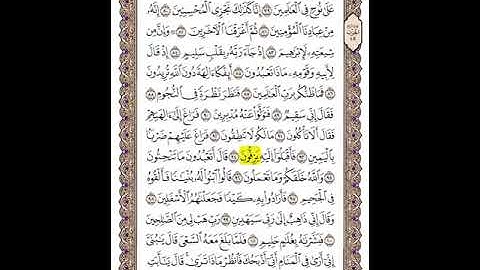 عَلَىٰ نُوحٍ فِي الْعَالَمِينَ ۝٧٩ إِنَّا كَذَٰلِكَ نَجْزِي الْمُحْسِنِينَ ۝٨٠ إِنَّهُ
مِنْ عِبَادِنَا الْمُؤْمِنِينَ ۝٨١ ثُمَّ أَغْرَقْنَا الْآخَرِينَ ۝٨٢ وَإِنَّ مِن
شِيعَتِهِ لَإِبْرَاهِيمَ ۝٨٣ إِذْ جَاءَ رَبَّهُ بِقَلْبٍ سَلِيمٍ ۝٨٤ إِذْ قَالَ
لِأَبِيهِ وَقَوْمِهِ مَاذَا تَعْبُدُونَ ۝٨٥ أَئِفْكًا آلِهَةً دُونَ اللَّهِ تُرِيدُونَ
۝٨٦ فَمَا ظَنُّكُم بِرَبِّ الْعَالَمِينَ ۝٨٧ فَنَظَرَ نَظْرَةً فِي النُّجُومِ ۝٨٨
فَقَالَ إِنِّي سَقِيمٌ ۝٨٩ فَتَوَلَّوْا عَنْهُ مُدْبِرِينَ ۝٩٠ فَرَاغَ إِلَىٰ آلِهَتِهِمْ
فَقَالَ أَلَا تَأْكُلُونَ ۝٩١ مَا لَكُمْ لَا تَنطِقُونَ ۝٩٢ فَرَاغَ عَلَيْهِمْ ضَرْبًا
بِالْيَمِينِ ۝٩٣ فَأَقْبَلُوا إِلَيْهِ يَزِفُّونَ ۝٩٤ قَالَ أَتَعْبُدُونَ مَا تَنْحِتُونَ
۝٩٥ وَاللَّهُ خَلَقَكُمْ وَمَا تَعْمَلُونَ ۝٩٦ قَالُوا ابْنُوا لَهُ بُنْيَانًا فَأَلْقُوهُ
فِي الْجَحِيمِ ۝٩٧ فَأَرَادُوا بِهِ كَيْدًا فَجَعَلْنَاهُمُ الْأَسْفَلِينَ ۝٩٨
وَقَالَ إِنِّي ذَاهِبٌ إِلَىٰ رَبِّي سَيَهْدِينِ ۝٩٩ رَبِّ هَبْ لِي مِنَ الصَّالِحِينَ
۝١٠٠ فَبَشَّرْنَاهُ بِغُلَامٍ حَلِيمٍ ۝١٠١ فَلَمَّا بَلَغَ مَعَهُ السَّعْيَ قَالَ يَا بُنَيَّ
إِنِّي أَرَىٰ فِي الْمَنَامِ أَنِّي أَذْبَحُكَ فَانظُرْ مَاذَا تَرَىٰ ۚ قَالَ يَا أَبَتِ